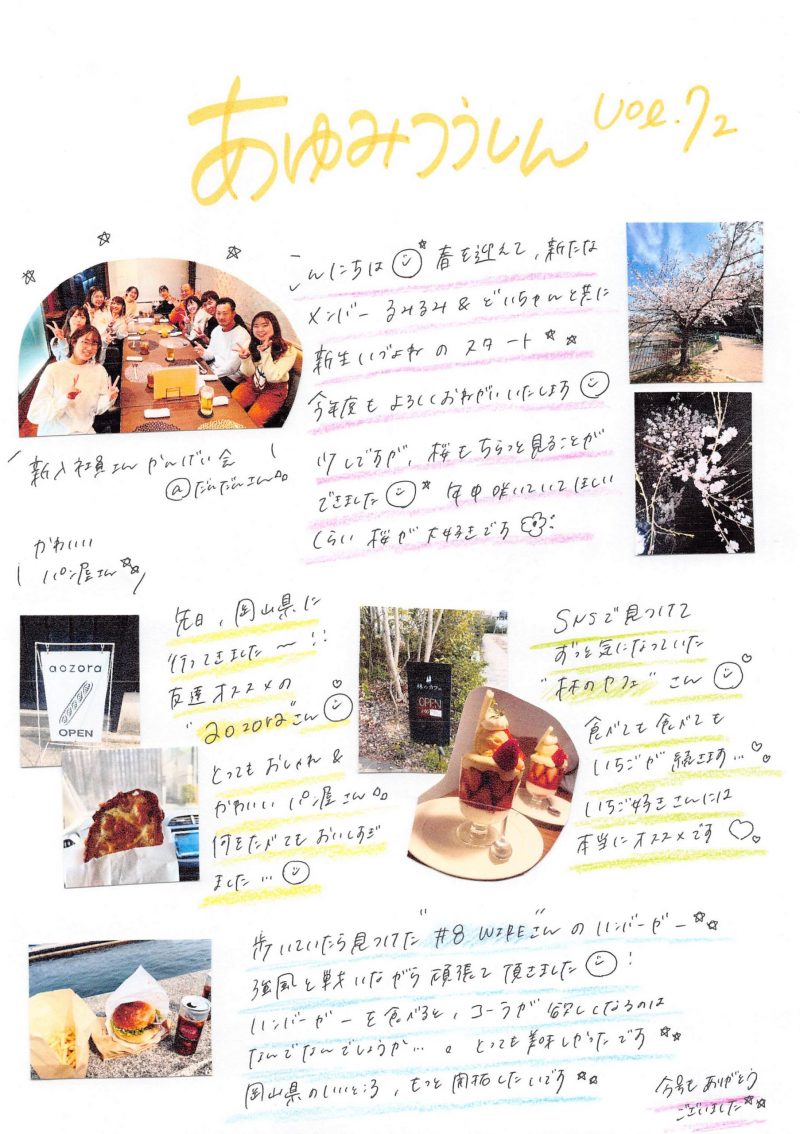 あゆみつうしん vol.72
こんにちは 春を迎えて、新たな
メンバー るみるみ & どいちゃんと共に
新生いづよねの スタート
今年度も よろしくおねがいいたします
少しですが、桜もちらっと見ることが
できました 年中咲いていてほしい
くらい 桜が大好きです
新入社員さん かんげい会
@だんだんさん
かわいい
パン屋さん
先日、岡山県に
行ってきました〜!!
友達オススメの
"aozora"さん
とってもおしゃれ &
かわいい パン屋さん
何をたべてもおいしすぎ
ました…
aozora
OPEN
林のカフェ
OPEN
SNSで見つけて
ずっと気になっていた
"林のカフェ" さん
食べても食べても
いちごが続きます…
いちご好きさんには
本当にオススメです
歩いていたら見つけた "#8 WIRE"さん のハンバーガー
強風と戦いながら頑張って頂きました !
ハンバーガーを食べると、コーラが欲しくなるのは
なんでなんでしょうか…。とっても美味しかったです
岡山県のいいところ、もっと開拓したいです
今号もありがとう
ございました